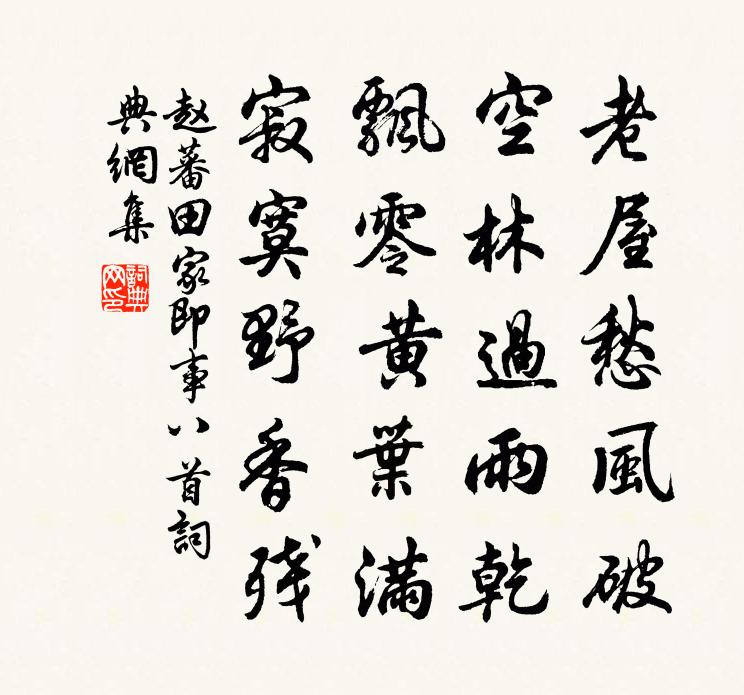 老屋愁風破
空林過雨乾
飄零黃葉滿
寂寞野香残
赵蕃田家即事八首詞
典網集
詞典网印